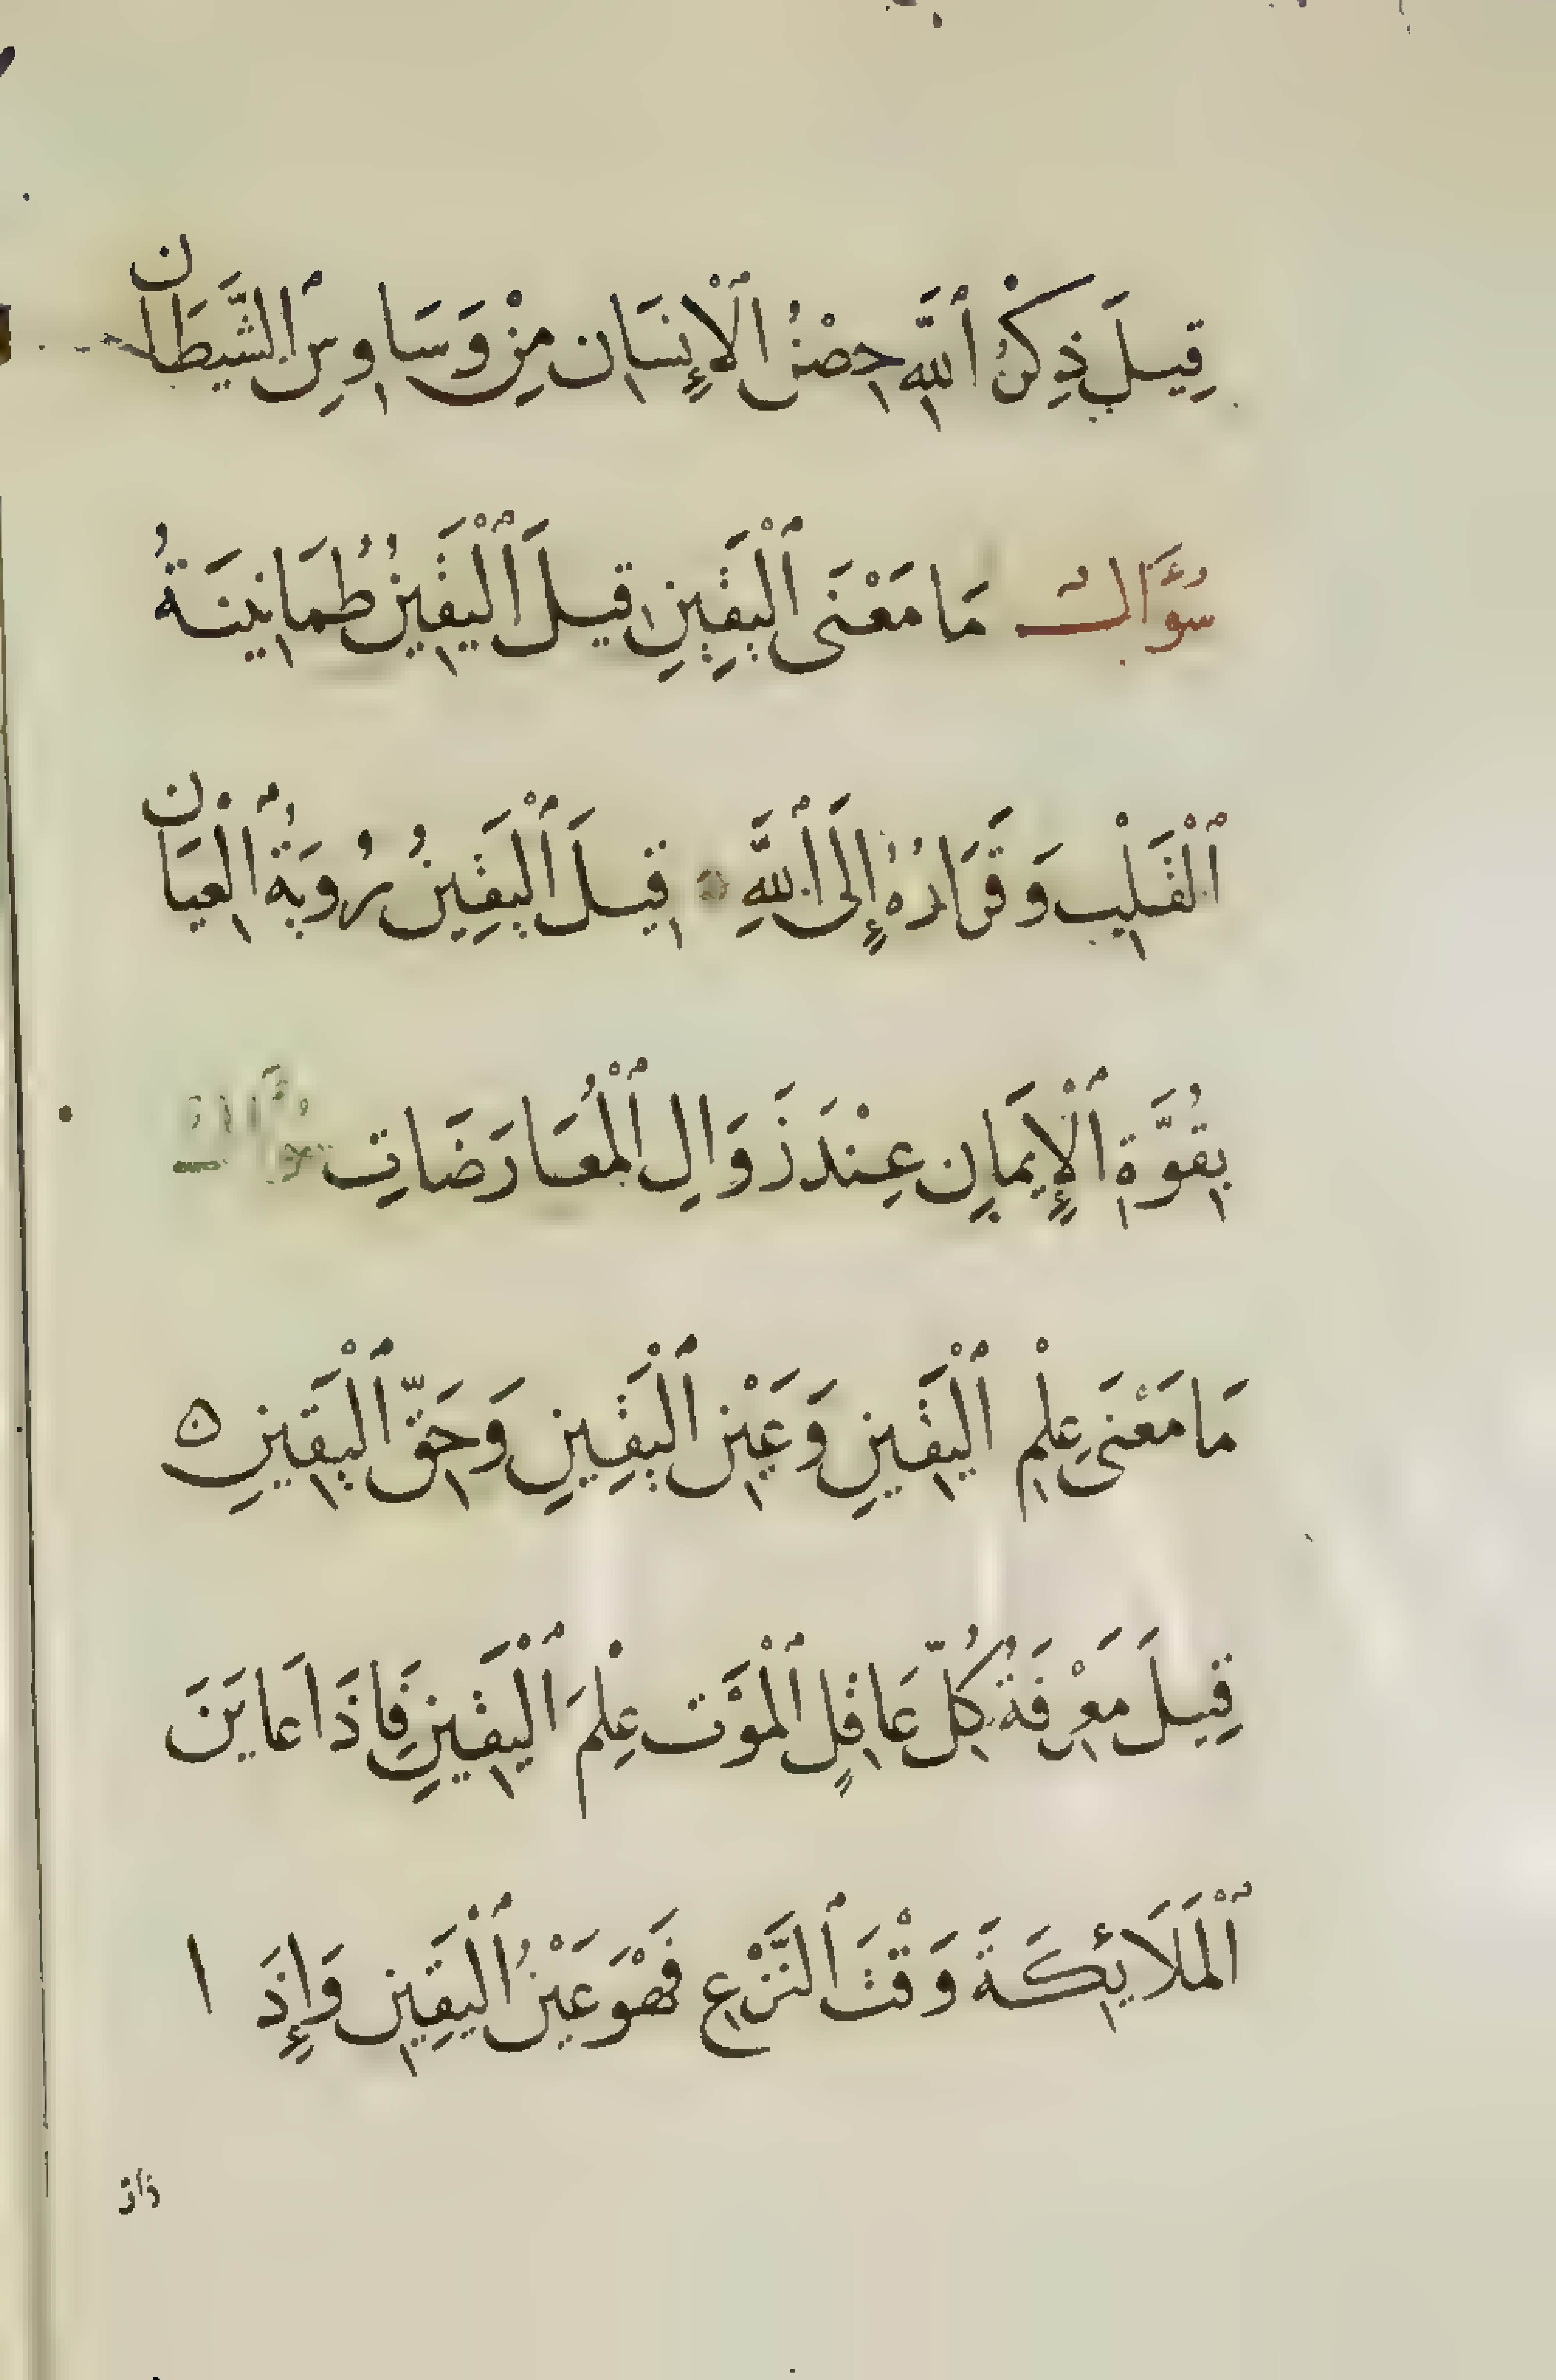 قِيلَ ذِكْرُ ٱللَّهِ حِصْنُ ٱلْإِنْسَانِ مِنْ وَسَاوِسِ ٱلشَّيْطَانِ
سُؤَّالٌ مَا مَعْنَى ٱلْيَقِينِ قِيلَ ٱلْيَقِينُ طُمَانِينَةُ
ٱلْقَلْبِ وَقَرَارُهُ إِلَى ٱللَّهِ قِيلَ ٱلْيَقِينُ رُويَةُ ٱلْعِيَانِ
بِقُوَّةِ ٱلْإِيمَانِ عِنْدَ زَوَالِ ٱلْمُعَارَضَاتِ سُؤَّالٌ
مَا مَعْنَى عِلْمِ ٱلْيَقِينِ وَعَيْنِ ٱلْيَقِينِ وَحَقِّ ٱلْيَقِينِ
قِيلَ مَعْرِفَةُ كُلِّ عَاقِلٍ ٱلْمَوْتَ عِلْمَ ٱلْيَقِينِ فَاِذَا عَايَنَ
ٱلْمَلَائِكَةَ وَقْتَ ٱلنَّزْعِ فَهْوَ عَيْنُ ٱلْيَقِينِ وَإِذَا
ذاق